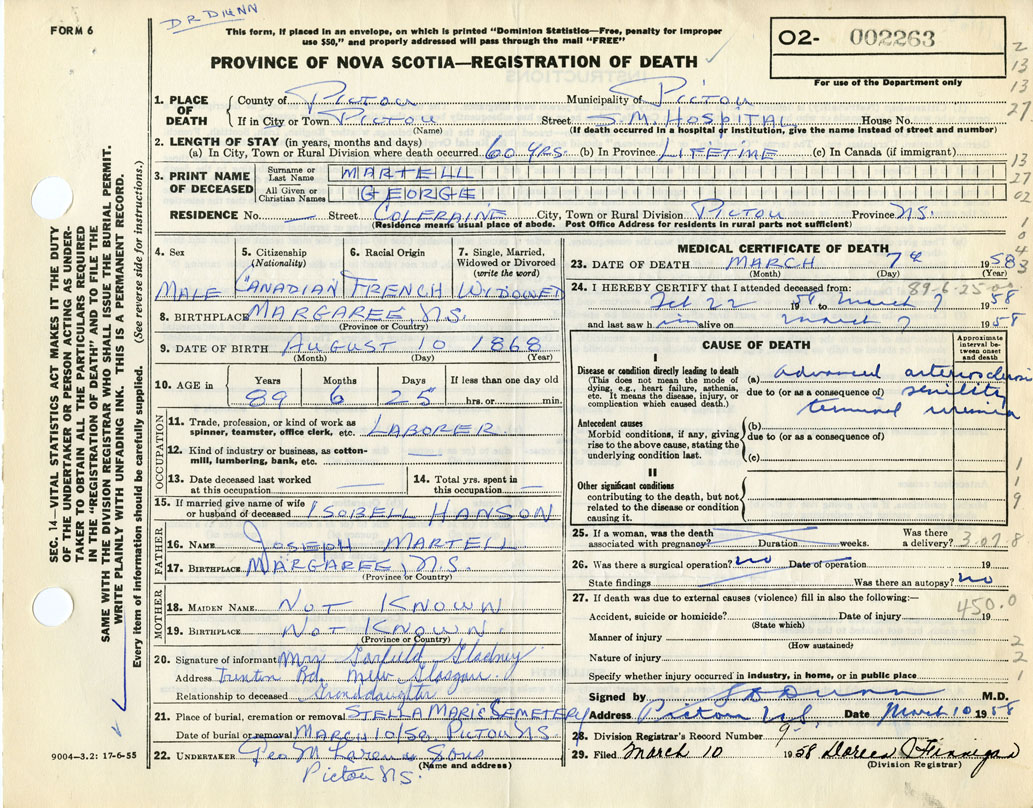 DR DUNN
FORM 6
This form, if placed in an envelope, on which is printed "Dominion Statistics—Free, penalty for improper
use $50," and properly addressed will pass through the mail "FREE"
O2- 002263
For use of the Department only
PROVINCE OF NOVA SCOTIA—REGISTRATION OF DEATH
1. PLACE OF DEATH County of PICTOU Municipality of PICTOU
If in City or Town PICTOU Street S.M. HOSPITAL House No.
(Name) (If death occurred in a hospital or institution, give the name instead of street and number)
2. LENGTH OF STAY (in years, months and days)
(a) In City, Town or Rural Division where death occurred 60 YRS. (b) In Province LIFETIME (c) In Canada (if immigrant)
3. PRINT NAME OF DECEASED Surname or Last Name MARTELL
All Given or Christian Names GEORGE
RESIDENCE No. — Street COLERAINE City, Town or Rural Division PICTOU Province N.S.
(Residence means usual place of abode. Post Office Address for residents in rural parts not sufficient)
4. Sex 5. Citizenship (Nationality) 6. Racial Origin 7. Single, Married, Widowed or Divorced (write the word)
MALE CANADIAN FRENCH WIDOWED
8. BIRTHPLACE MARGAREE, N.S.
(Province or Country)
9. DATE OF BIRTH AUGUST 10 1868
(Month) (Day) (Year)
10. AGE in Years Months Days If less than one day old
89 6 25 hrs. or min.
OCCUPATION
11. Trade, profession, or kind of work as spinner, teamster, office clerk, etc. LABORER
12. Kind of industry or business, as cotton-mill, lumbering, bank, etc. —
13. Date deceased last worked at this occupation — 14. Total yrs. spent in this occupation —
15. If married give name of wife or husband of deceased ISOBELL HANSON
FATHER
16. NAME JOSEPH MARTELL
17. BIRTHPLACE MARGAREE, N.S.
(Province or Country)
MOTHER
18. MAIDEN NAME NOT KNOWN
19. BIRTHPLACE NOT KNOWN
(Province or Country)
20. Signature of informant Mrs Garfield Gladney
Address Trenton Rd, New Glasgow
Relationship to deceased Granddaughter
21. Place of burial, cremation or removal STELLA MARIS CEMETERY
Date of burial or removal MARCH 10/58 PICTOU NS
22. UNDERTAKER Geo M Sons
Pictou NS.
(Name and address)
MEDICAL CERTIFICATE OF DEATH
23. DATE OF DEATH MARCH 7th 1958
(Month) (Day) (Year)
24. I HEREBY CERTIFY that I attended deceased from: 89-6-25
Feb 22 1958 to March 7 1958
and last saw him alive on March 7 1958
CAUSE OF DEATH
Approximate interval between onset and death
I
Disease or condition directly leading to death
(This does not mean the mode of dying, e.g., heart failure, asthenia, etc. It means the disease, injury, or complication which caused death.)
(a) advanced arteriosclerosis
due to (or as a consequence of) senility
terminal uremia
Antecedent causes
Morbid conditions, if any, giving rise to the above cause, stating the underlying condition last.
(b)
due to (or as a consequence of)
(c)
II
Other significant conditions
contributing to the death, but not related to the disease or condition causing it.
25. If a woman, was the death associated with pregnancy? Duration weeks. Was there a delivery? 3.07.8
26. Was there a surgical operation? no Date of operation 19
State findings Was there an autopsy? no
27. If death was due to external causes (violence) fill in also the following:—
450.0
Accident, suicide or homicide? Date of injury 19
(State which)
Manner of injury
(How sustained)
Nature of injury
Specify whether injury occurred in industry, in home, or in public place
Signed by Dunn M.D.
Address Pictou N.S. Date March 10 1958
28. Division Registrar's Record Number 9
29. Filed March 10 1958 Doreen
(Division Registrar)
SEC. 14—VITAL STATISTICS ACT MAKES IT THE DUTY
OF THE UNDERTAKER OR PERSON ACTING AS UNDER-
TAKER TO OBTAIN ALL THE PARTICULARS REQUIRED
IN THE "REGISTRATION OF DEATH" AND TO FILE THE
SAME WITH THE DIVISION REGISTRAR WHO SHALL ISSUE THE BURIAL PERMIT.
WRITE PLAINLY WITH UNFADING INK. THIS IS A PERMANENT RECORD.
Every item of information should be carefully supplied. (See reverse side for instructions.)
9004—3.2: 17-6-55
2
13
13
27
13
27
02
1
0
4
3
1
1
9
2
2
1